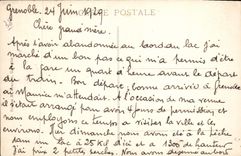 Grenoble, 24 Juin 1929
POSTALE
Chère grand'mère,
Après t'avoir abandonnée au bord du lac j'ai
marché d'un bon pas ce qui m'a permis d'être
à la gare un quart d'heure avant le départ
du train. Bon départ, bonne arrivée à Grenoble
où Maurice m'attendait. A l'occasion de ma venue
il s'était arrangé pour avoir 4 jours de permission et
nous employons ce temps à visiter la ville et les
environs. Hier dimanche nous avons été à la pêche
dans un lac à 25 Kil d'ici et à 1000 de hauteur
J'ai pris 2 petites perches. Nous avons déjeuné au bord